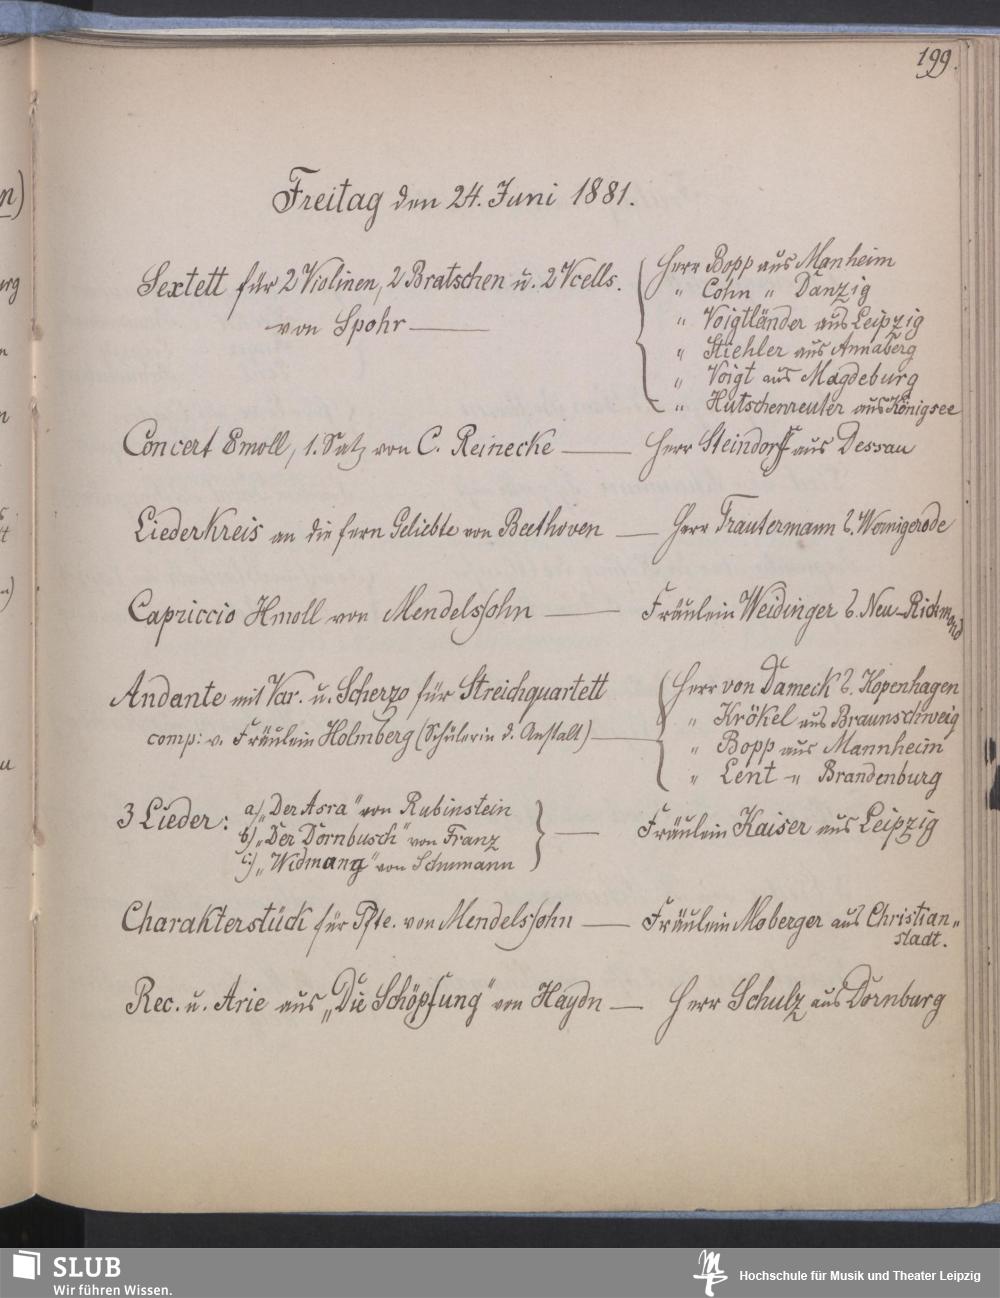 199.
Freitag den 24. Juni 1881.
Sextett für 2 Violinen, 2 Bratschen u. 2 Vcells.
von Spohr
Herr Bopp aus Manheim
" Cohn " Danzig
" Voigtländer aus Leipzig
" Stiehler aus Annaberg
" Voigt aus Magdeburg
" Hutschenreuter aus Königsee
Concert moll, 1. Satz von C. Reinecke — Herr Steindorff aus Dessau
Liederkreis an die fern Geliebte von Beethoven — Herr Trautermann Wernigerode
Capriccio Hmoll von Mendelssohn — Fräulein Weidinger Neu-Richmond
Andante mit Var. u. Scherzo für Streichquartett
comp: v. Fräulein Holmberg (Schülerin d. Anstalt)
Herr von Dameck Kopenhagen
" Krökel aus Braunschweig
" Bopp aus Mannheim
" Lent " Brandenburg
3 Lieder: a) "Der Asra" von Rubinstein
b) "Der Dornbusch" von Franz
c) "Widmung" von Schumann
Fräulein Kaiser aus Leipzig
Charakterstück für Pfte. von Mendelssohn — Fräulein Moberger aus Christian-
stadt.
Rec. u. Arie aus "Die Schöpfung" von Haydn — Herr Schulz aus Dornburg
SLUB
Wir führen Wissen.
Hochschule für Musik und Theater Leipzig